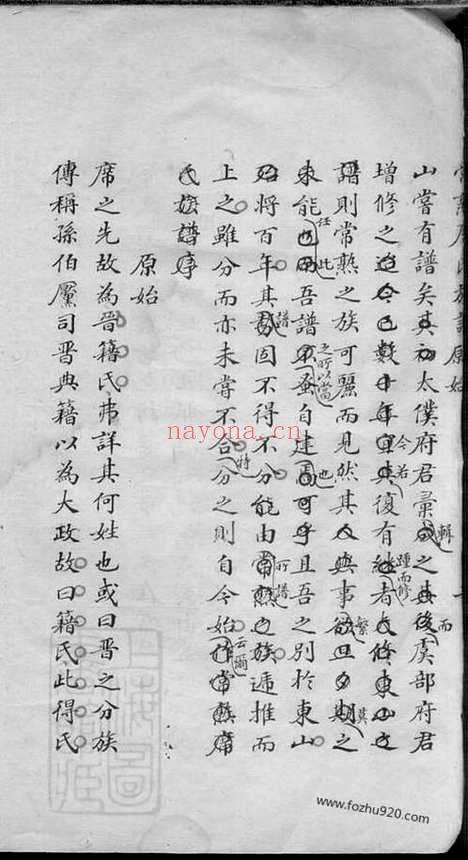 常熟席氏族譜原始
山嘗有譜矣其初太僕府君彙成之其後虞部府君
輯
而
增修之迄今已數十年宜其復有
今若
踵而修
譜則常熟之族可麗而見然其人與事繁且夕期之
其
未能也
任此
吾譜不
之所以當
蚤自建
也
可乎且吾之別於東山
殆將百年其
譜
固不得不分能由常熟之族遞推而
所譜
上之雖分而亦未嘗不合
特
分之則自今始
云爾
作常熟席
氏族譜序
原始
席之先故為晉籍氏弗詳其何姓也或曰晉之分族
傳稱孫伯黶司晉典籍以為大政故曰籍氏此得氏
nayona.cn
www.fozhu920.com